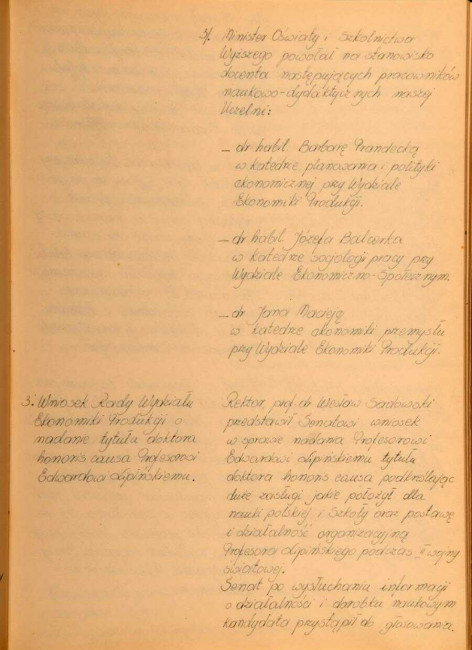 3/. Minister Oświaty i Szkolnictwa
Wyższego powołał na stanowisko
docenta następujących pracowników
naukowo-dydaktycznych naszej
Uczelni:
– dr habil. Barbarę Prandecką
w Katedrze planowania i polityki
ekonomicznej przy Wydziale
Ekonomiki Produkcji.
– dr habil. Józefa Balcerka
w Katedrze Socjologii pracy przy
Wydziale Ekonomiczno-Społecznym.
– dr Jana Macieję
w Katedrze ekonomiki przemysłu
przy Wydziale Ekonomiki Produkcji.
3. Wniosek Rady Wydziału
Ekonomiki Produkcji o
nadanie tytułu doktora
honoris causa Profesorowi
Edwardowi Lipińskiemu.
Rektor, prof. dr Wiesław Sadowski
przedstawił Senatowi wniosek
w sprawie nadania Profesorowi
Edwardowi Lipińskiemu tytułu
doktora honoris causa podkreślając
duże zasługi jakie położył dla
nauki polskiej i Szkoły oraz postawę
i działalność organizacyjną
Profesora Lipińskiego podczas II wojny
światowej.
Senat po wysłuchaniu informacji
o działalności i dorobku naukowym
kandydata przystąpił do głosowania.